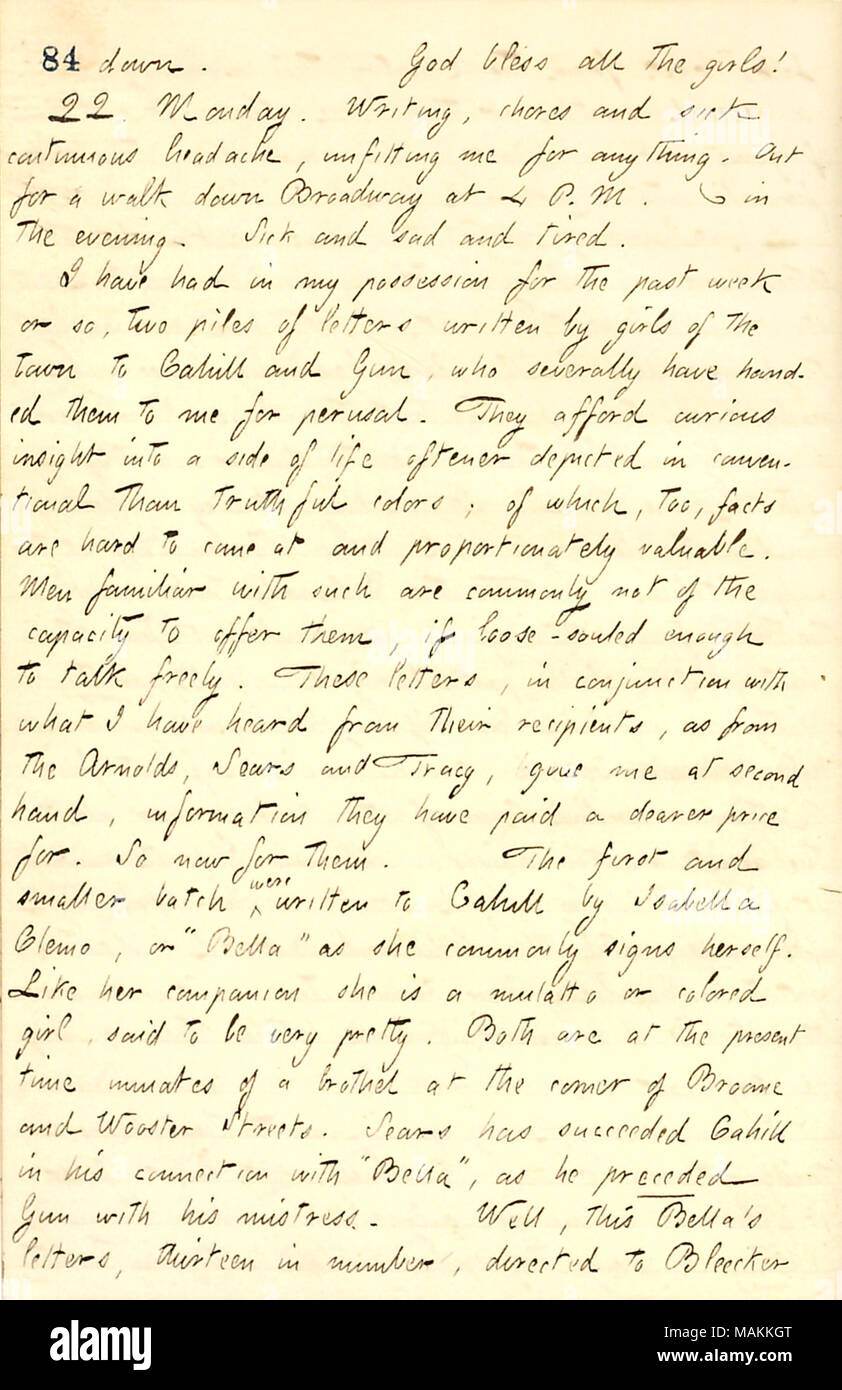 84 down. God bless all the girls!
22. Monday. Writing, chores and sick
continuous headache, unfitting me for anything. Out
for a walk down Broadway at 4 P. M. in
the evening. Sick and sad and tired.
I have had in my possession for the past week
or so, two piles of letters written by girls of the
town to Cahill and Gun, who severally have hand-
ed them to me for perusal. They afford curious
insight into a side of life oftener depicted in conven-
tional than truthful colors; of which, too, facts
are hard to come at and proportionately valuable.
Men familiar with such are commonly not of the
capacity to offer them, if loose-souled enough
to talk freely. These letters, in conjunction with
what I have heard from their recipients, as from
the Arnolds, Sears and Tracy, give me at second
hand, information they have paid a dearer price
for. So now for them. The first and
smaller batch were written to Cahill by Isabella
Clemo, or "Bella" as she commonly signs herself.
Like her companion she is a mulatto or colored
girl, said to be very pretty. Both are at the present
time inmates of a brothel at the corner of Broome
and Wooster Streets. Sears has succeeded Cahill
in his connection with "Bella", as he preceded
Gun with his mistress. Well, this Bella's
letters, thirteen in number, directed to Bleecker
alamy
Image ID: MAKKGT
www.alamy.com